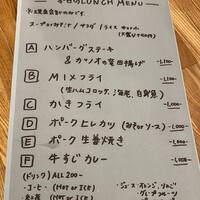 本日のLUNCH MENU
スープorみそ汁 / サラダ / ライス
A ハンバーグステーキ
& カツオの竜田揚げ -1,100-
B MIXフライ -1,100-
(生ハムコロッケ、海老、白身魚)
C かきフライ -1,000-
D ポークヒレカツ (みそorソース) -1,000-
E ポーク生姜焼き -1,000-
F 牛すじカレー -1,000-
(ドリンク) ALL 200-
・コーヒー (HOT or ICE) ・ジュース オレンジ、りんご
・紅茶 (HOT or ICE) グレープフルーツ